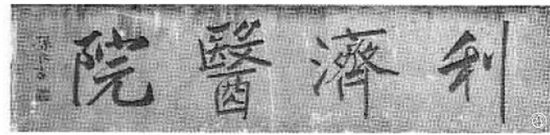 利濟醫院
④